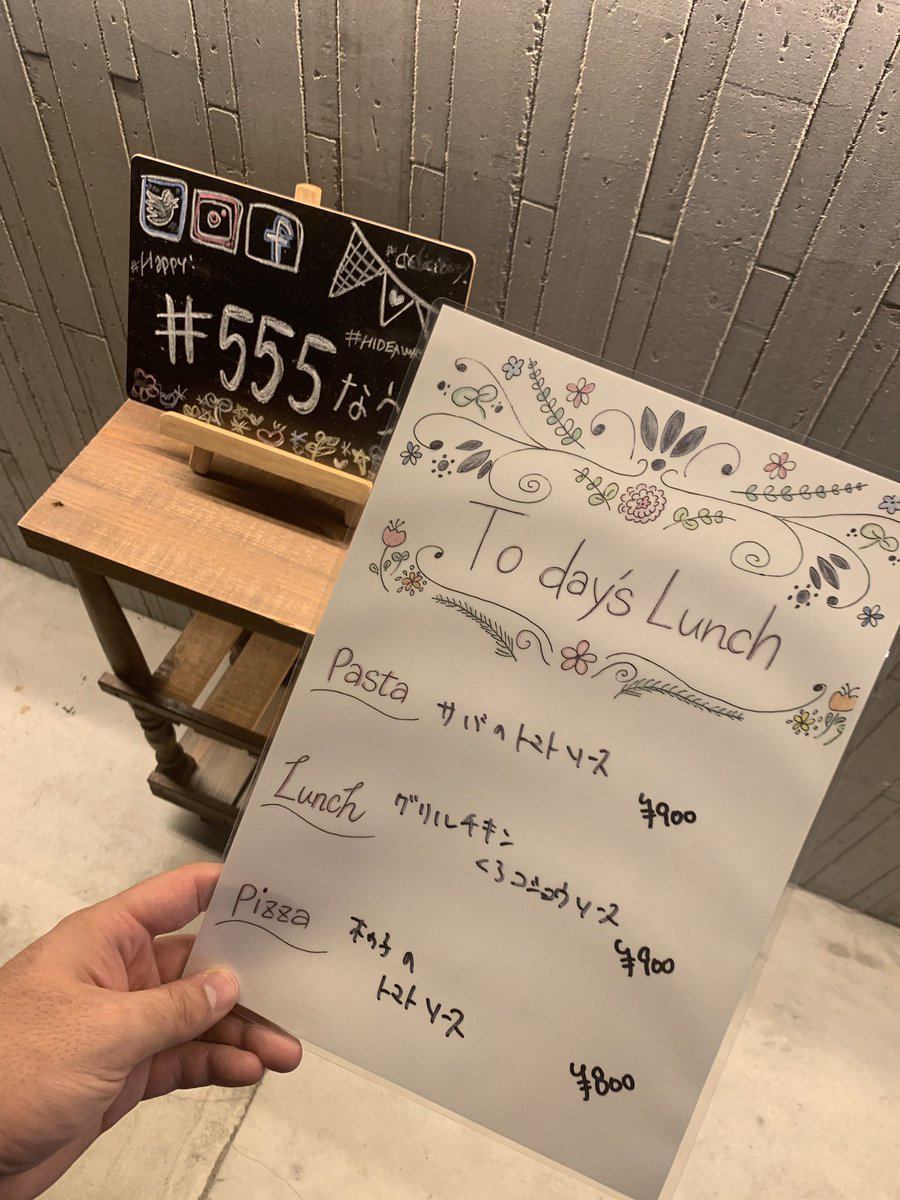 #Happy!
#delicious
#555
#HIDEAWA
なう
To day's Lunch
Pasta
サバのトマトソース
¥900
Lunch
グリルチキン
くろコショウソース
¥900
Pizza
木の子の
トマトソース
¥800